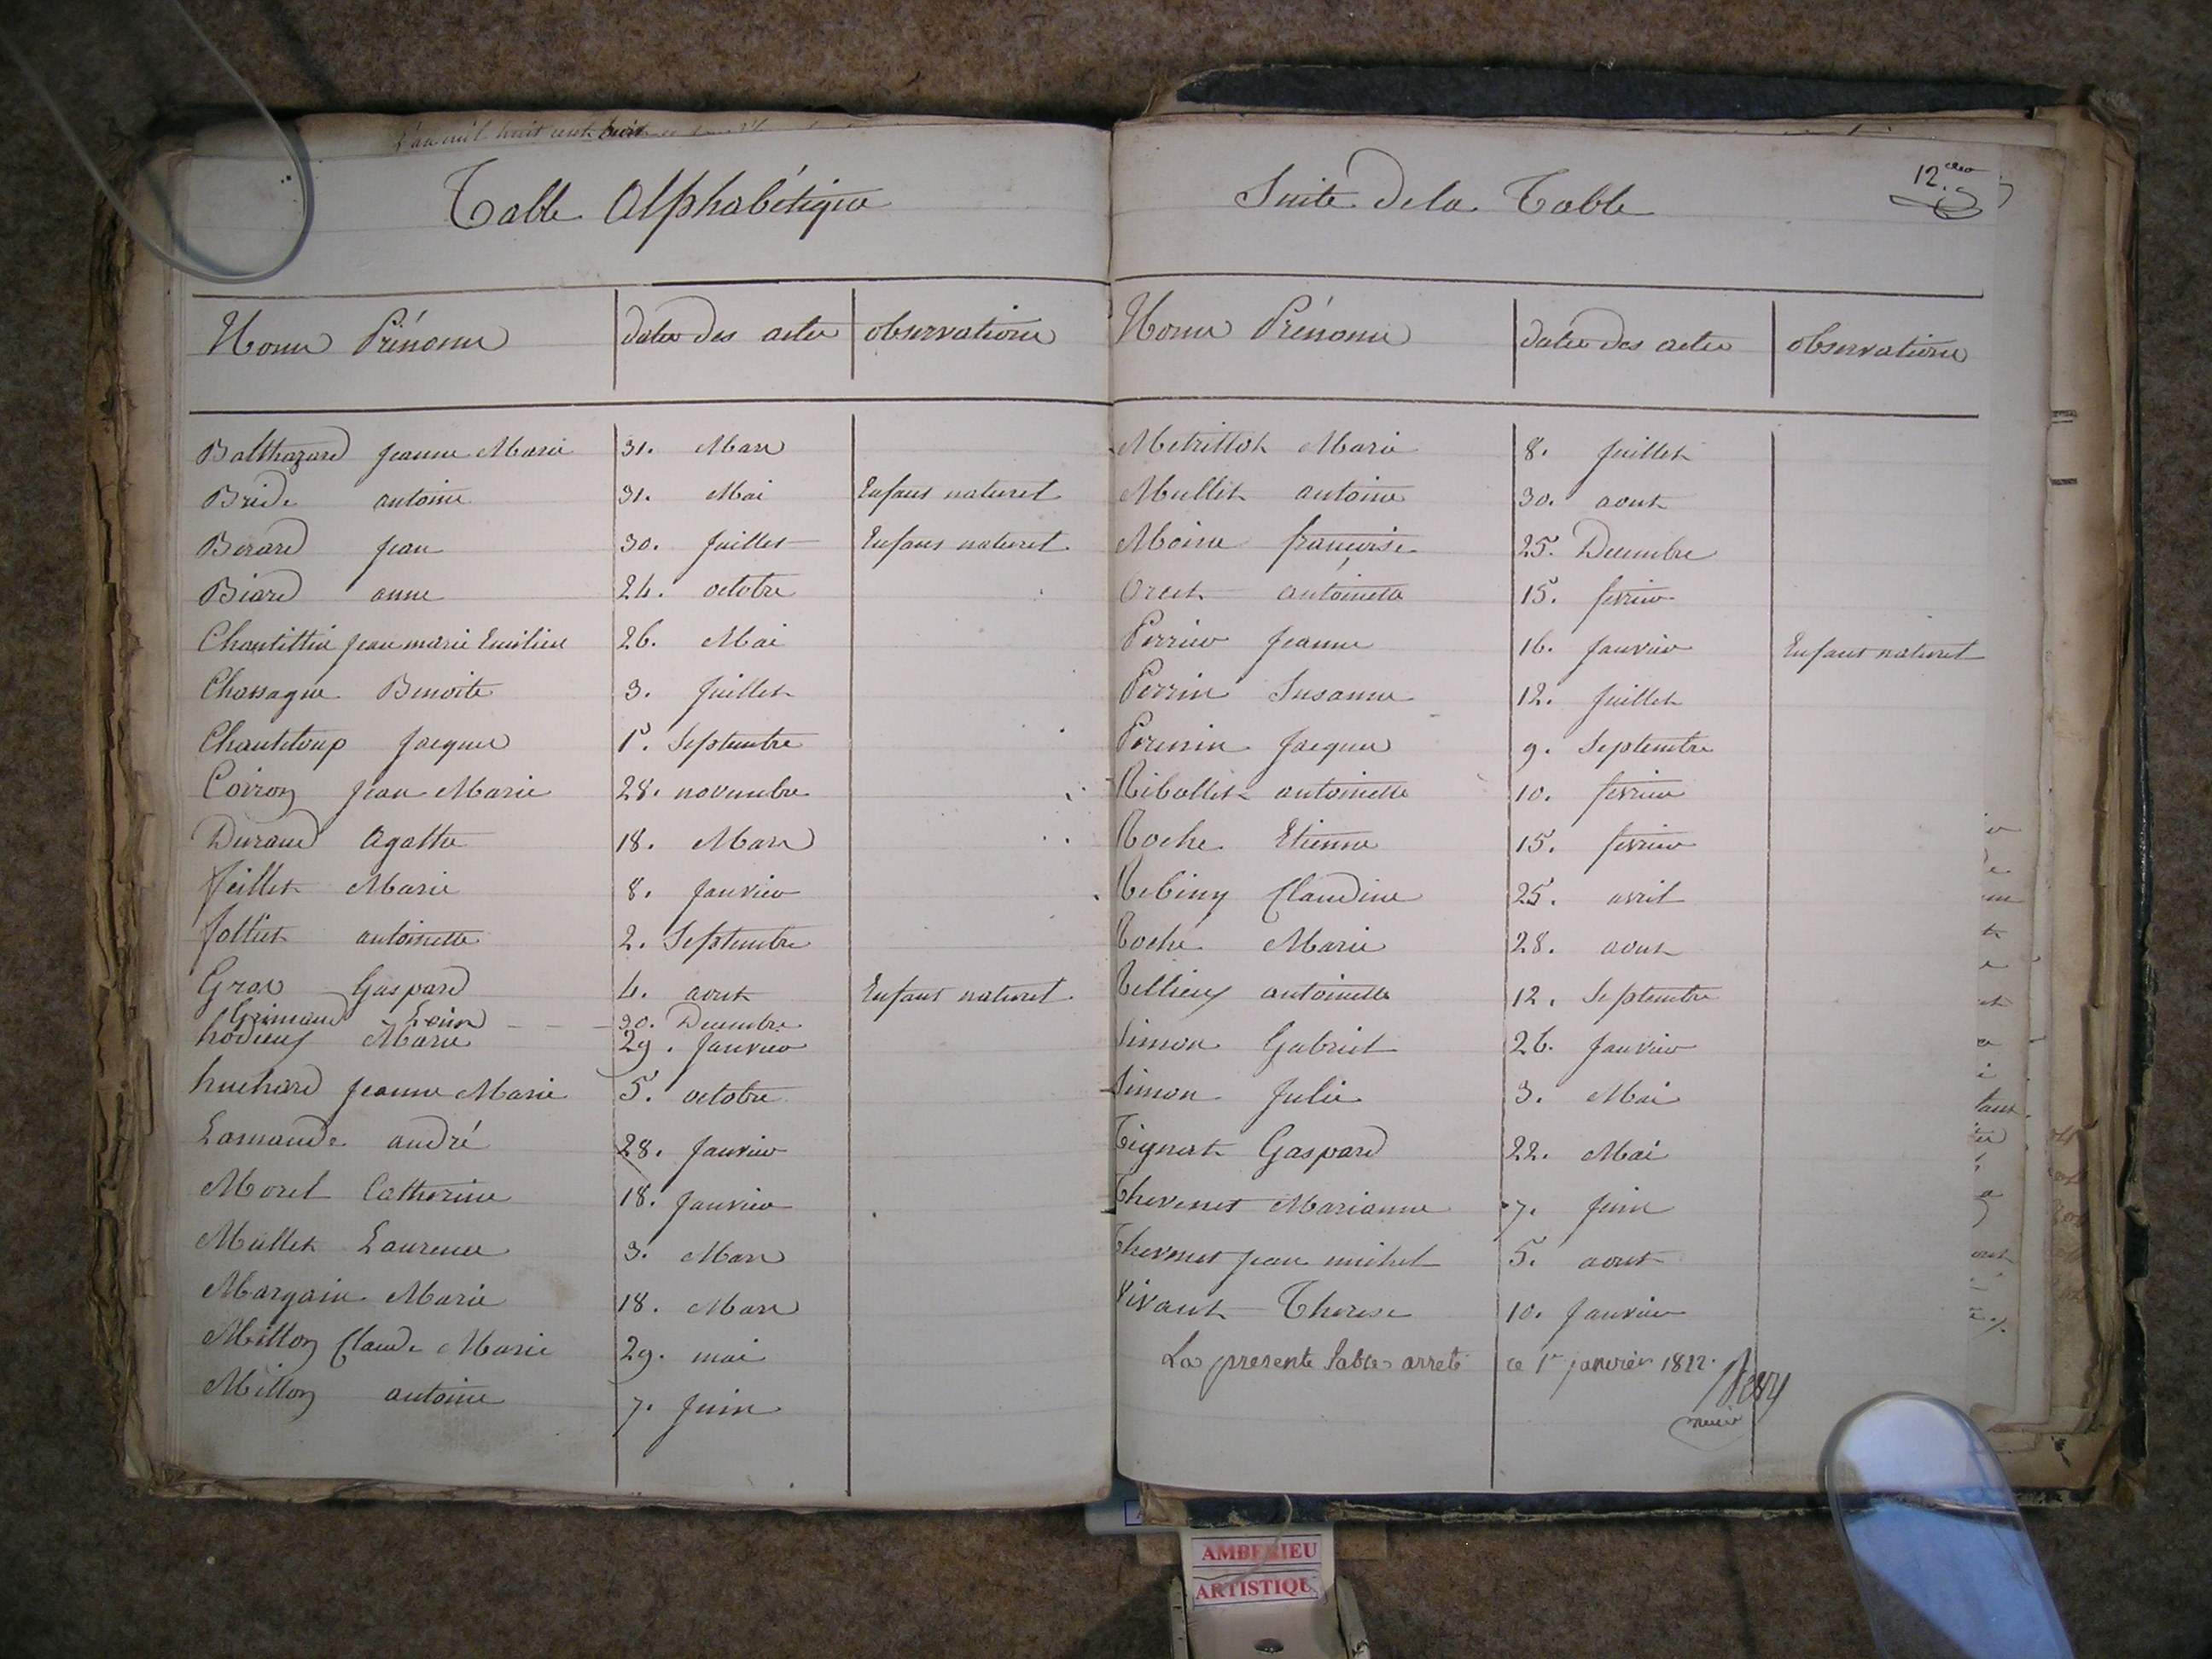 L'an mil huit cent huit
Table Alphabétique
Noms Prénoms dates des actes observations
Balthazard jeanne Marie 31. Mars
Bride antoine 31. Mai Enfant naturel
Berard jean 30. juillet Enfant naturel
Biard anne 24. octobre
Chantittin jean marie Emilien 26. Mai
Chassagne Benoite 3. juillet
Chanteloup jacques 1r. Septembre
Coiron jean Marie 28. novembre
Durand Agathe 18. Mars
feillet Marie 8. janvier
folliet antoinette 2. Septembre
Gras Gaspard 4. aout Enfant naturel
Grimaud Louis 30. Decembre
hodieux Marie 29. janvier
huchard jeanne Marie 5. octobre
Lamande andré 28. janvier
Morel Catherine 18. janvier
Mullet Laurence 3. Mars
Margain Marie 18. Mars
Millon Claude Marie 29. mai
Millon antoine 7. juin
Suite de la Table
12.
Noms Prénoms dates des actes observations
Metrillot Marie 8. juillet
Mullet antoine 30. aout
Moine françoise 25. Decembre
Orcet antoinette 15. fevrier
Perrier jeanne 16. janvier Enfant naturel
Perrin Susanne 12. juillet
Perenin jacques 9. Septembre
Ribollet antoinette 10. fevrier
Roche Etienne 15. fevrier
Rebiny Claudine 25. avril
Roche Marie 28. aout
Rellieux antoinette 12. Septembre
Simon Gabriel 26. janvier
Simon Julie 3. Mai
Tignat Gaspard 22. Mai
Thevenet Marianne 7. juin
Thevenet jean michel 5. aout
Vivant Therese 10. janvier
La presente table arreté ce 1r janvier 1812.
maire
AMBERIEU
ARTISTIQUE